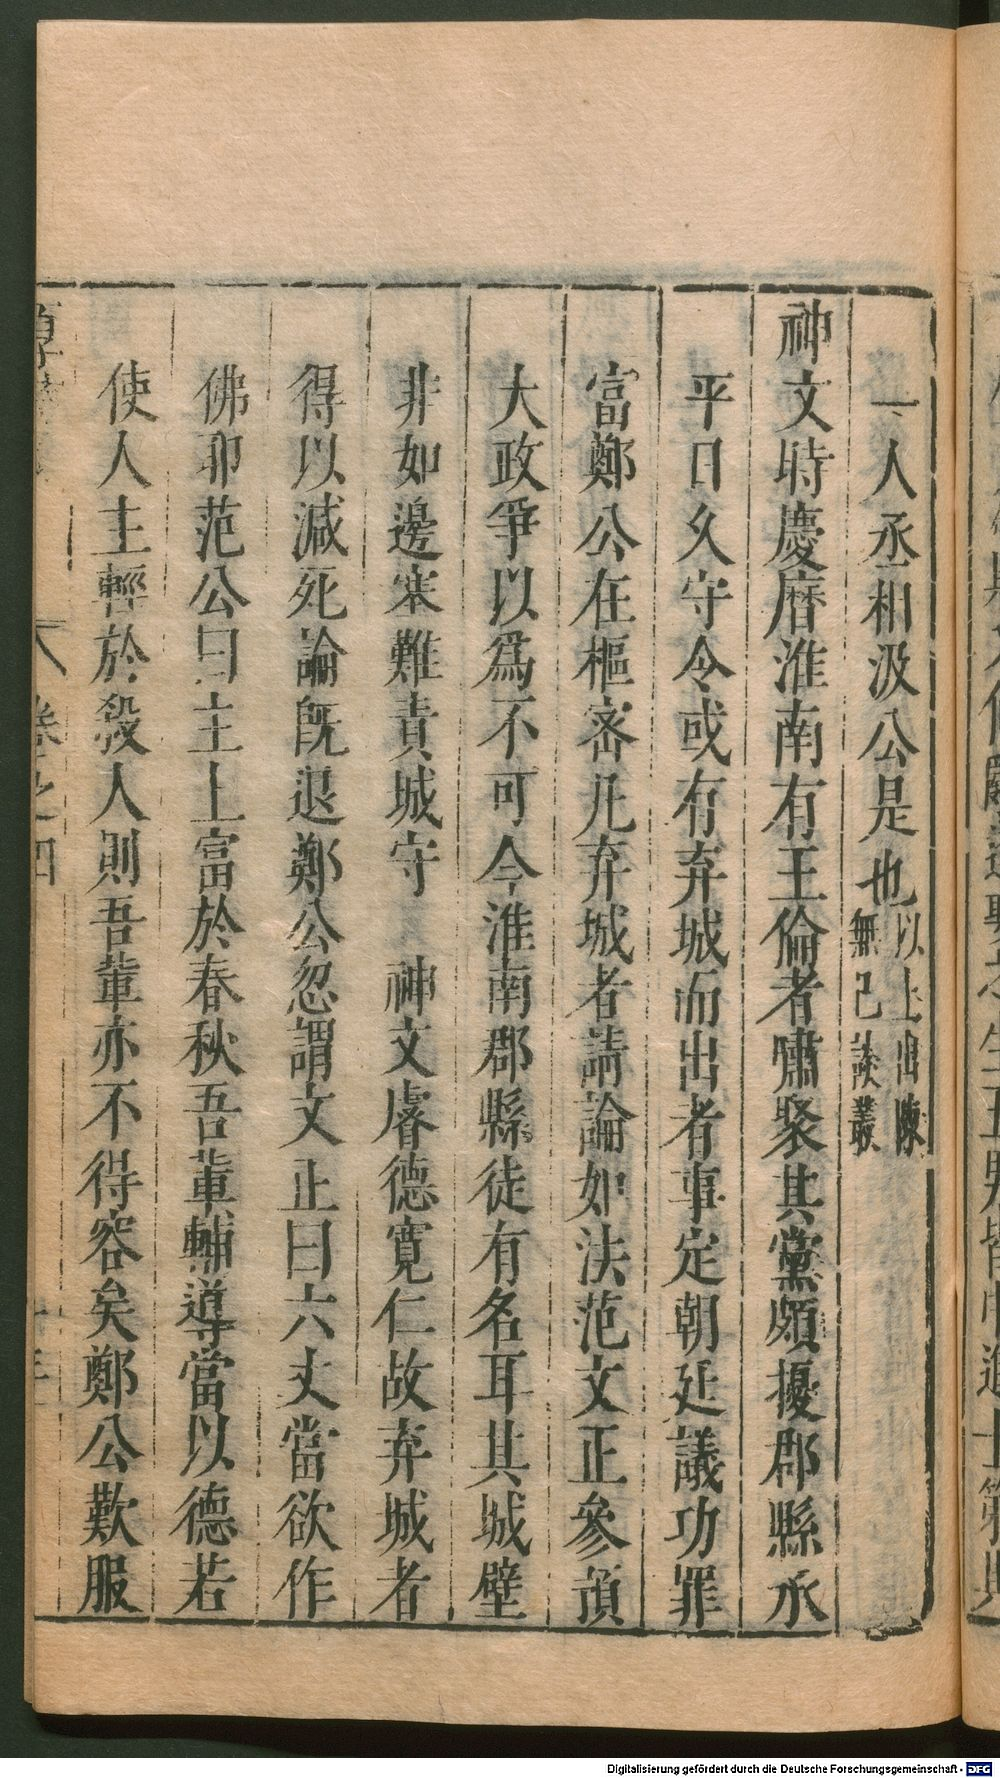 一人丞相汲公是也以上出陳無己談叢
神文時慶曆淮南有王倫者嘯聚其黨頗擾郡縣承
平日久守令或有弃城而出者事定朝廷議功罪
富鄭公在樞密凡弃城者請論如法范文正參預
大政爭以爲不可今淮南郡縣徒有名耳其城壁
非如邊塞難責城守　神文睿德寬仁故弃城者
得以減死論旣退鄭公忽謂文正曰六丈當欲作
佛耶范公曰主上富於春秋吾輩輔導當以德若
使人主輕於殺人則吾輩亦不得容矣鄭公歎服
卷之四
Digitalisierung gefördert durch die Deutsche Forschungsgemeinschaft - DFG